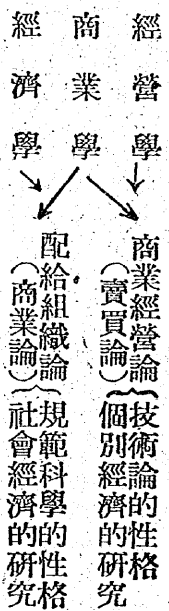 經營學
商業學
經濟學
商業經營論
(賣買論)
技術論的性格
個別經濟的硏究
配給組織論
(商業論)
規範科學的性格
社會經濟的硏究